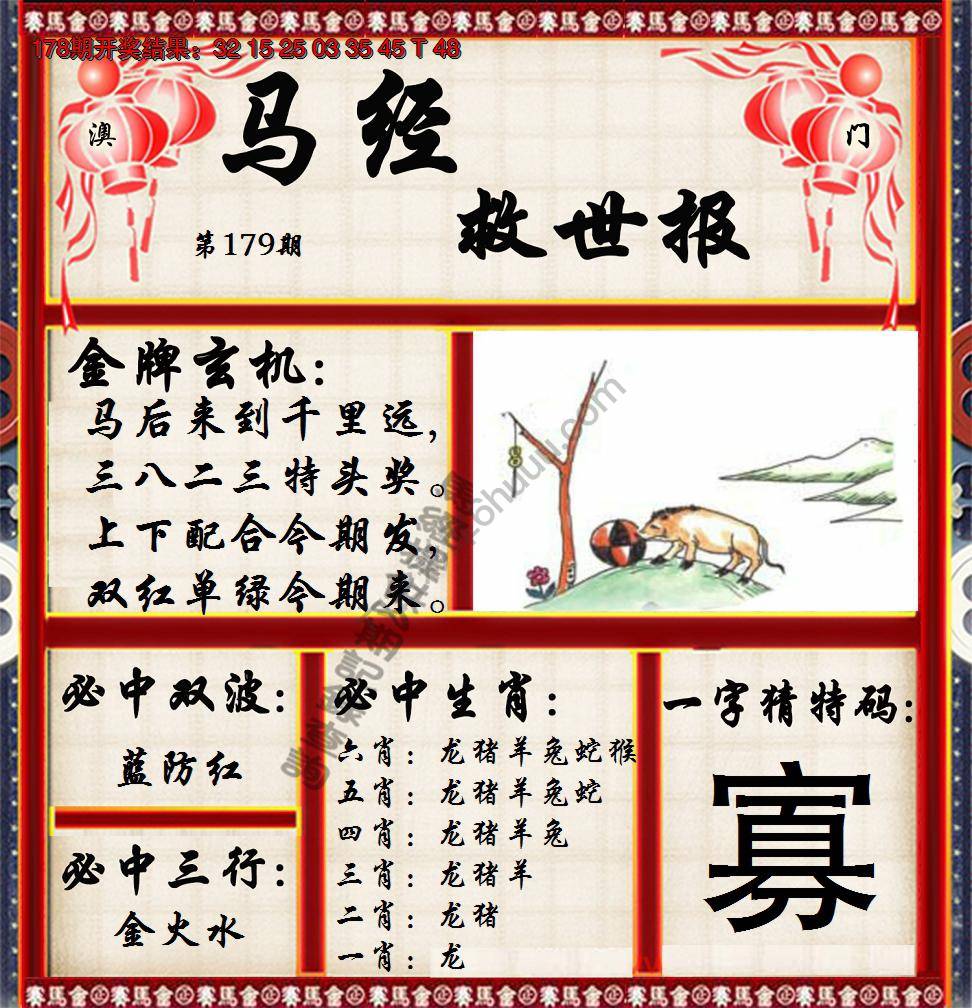 賽馬會賽馬會賽馬會賽馬會賽馬會賽馬會賽馬會賽馬會
178期开奖结果：32 15 25 03 35 45 T 48
澳
门
马经
救世报
第179期
金牌玄机：
马后来到千里远，
三八二三特头奖。
上下配合今期发，
双红单绿今期来。
必中双波：
蓝防红
必中三行：
金火水
必中生肖：
六肖：龙猪羊兔蛇猴
五肖：龙猪羊兔蛇
四肖：龙猪羊兔
三肖：龙猪羊
二肖：龙猪
一肖：龙
一字猜特码：
寡